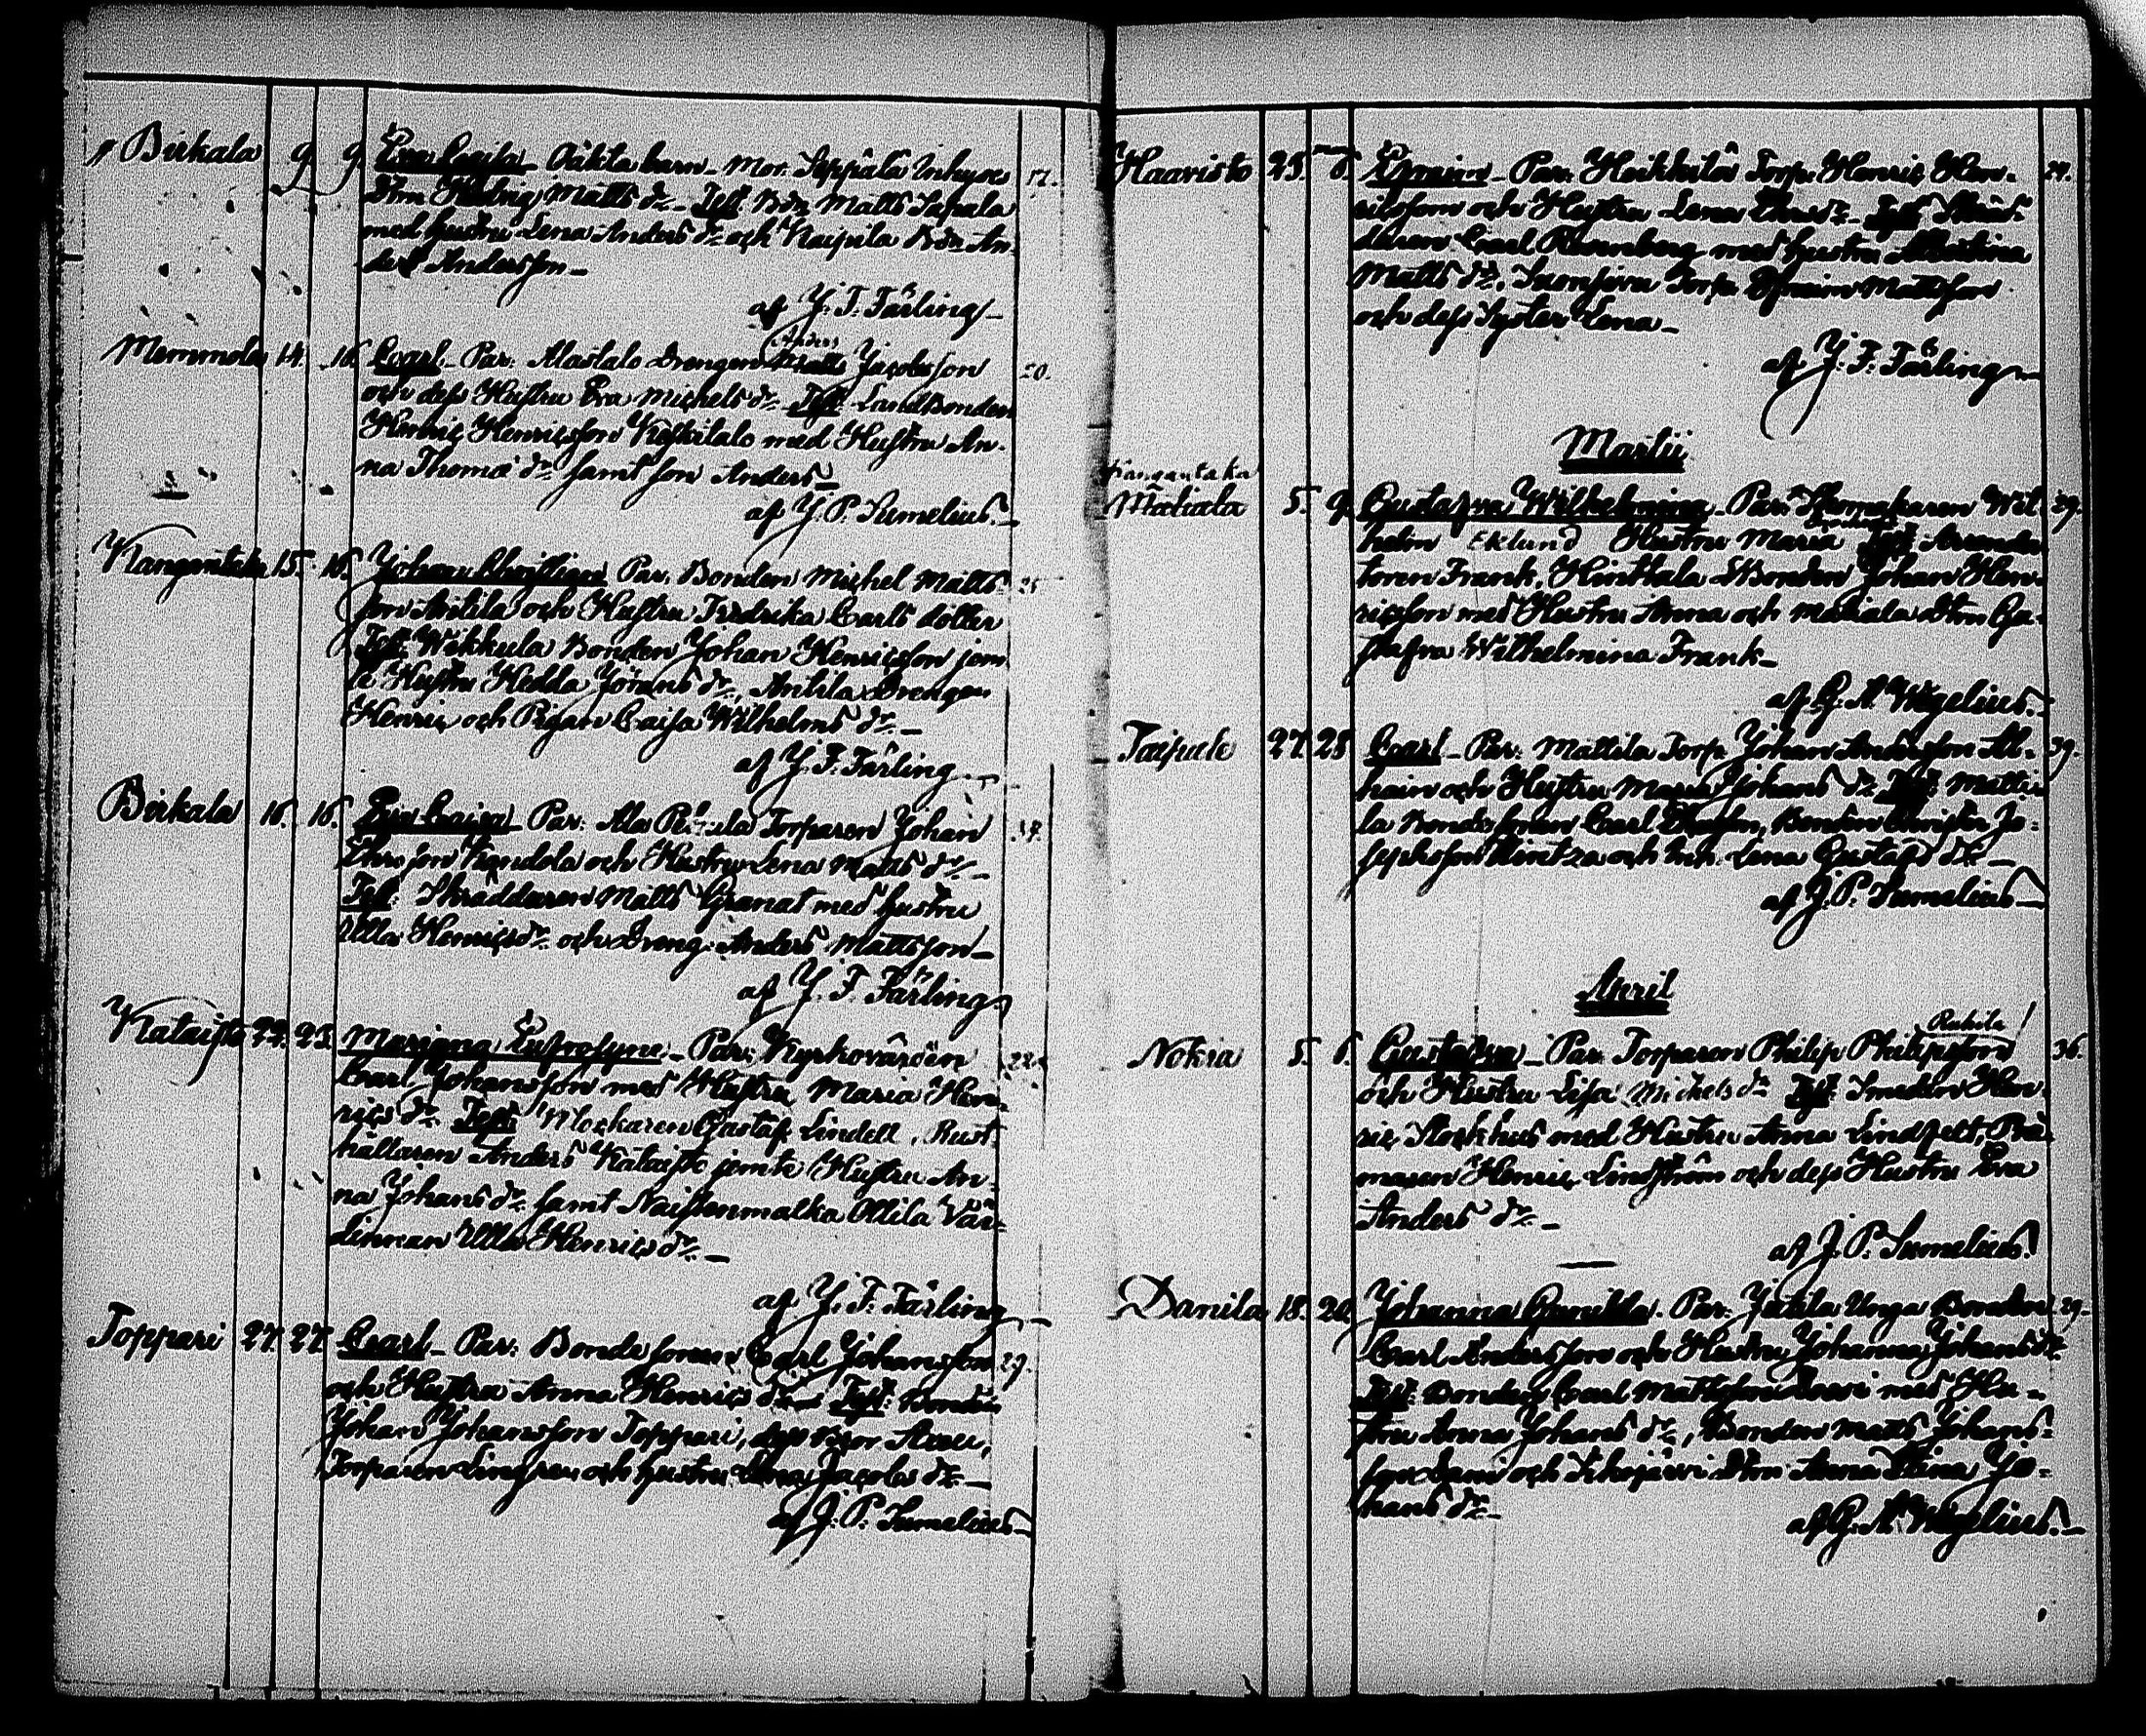 Birkala 9. 9. Eva Caisa - Oäkta barn - Mor. Seppälä Inhyses 17.
Dtrn Hedvig Matts dr - Test. Bdn Matts Sapala
med hustru Lena Anders dr och Kaipila Bdn An-
ders Andersson -
af J. F. Färling -
Anders
Memmola 14. 16. Carl - Par: Alastalo Drengen Matts Jacobsson 20.
och dess Hustru Eva Michels dr - Test: Landbonden
Henric Henricsson Keskitalo med Hustru An-
na Thomæ dr samt son Anders -
af J. P. Sumelius. -
Kangantaka 15. 16. Johan Par. Bonden Michel Matts- 25
son Antila och Hustru Fredrika Carls dotter
Test: Wikkula Bonden Johan Henricsson jem-
te Hustru Hedda Jörans dr, Antila Drengen
Henric och Pigan Caisa Wilhelms dr -
af J. F. Färling -
Birkala 16. 16. Eva Caisa - Par: Ala Torparen Johan 37.
son och Hustru Lena Matts dr -
Test: Skräddaren Matts Granat med hustru
Ulla Henrics dr och Dreng. Anders Mattsson -
af J. F. Färling
Kataisto 22. 23. Mariana Eufrosyne - Par: Kyrkovärden 22.
Carl Johansson med Hustru Maria Hen-
rics dr. Test: Klockaren Gustaf Lindell, Rust-
hållaren Anders Kataisto jemte Hustru An-
na Johans dr. samt Naistenmatka Ollila Vär-
dinnan Ulla Henrics dr. -
af J. F. Färling
Toppari 27. 27. Carl - Par: Bonde sonen Carl Johansson 29.
och Hustru Anna Henrics dr - Test: Bonden
Johan Johansson Toppari,
Torparen och hustru Lena Jacobs dr -
af J. P. Sumelius -
Haavisto 25. 6. Efraim - Par. Heikkilä Torp. Henric Hen- 27.
ricsson och Hustru Lena dr - Test: Skräd-
daren Carl Rosenberg med hustru
Matts dr, Torp. Efraim Mattsson
och dess Syster Lena -
af J. F. Färling
Martii
Kangantaka
Matiala 5. 9. Gustafva Wilhelmina - Par. Skomakaren Wil- 29.
helm Eklund Hustru Maria Test Arrenda-
toren Frank, Hinttala Bonden Johan Hen-
ricsson med Hustru Anna och Matiala Dtrn Gu-
stafva Wilhelmina Frank -
af G. A. Wegelius. -
Taipale 27. 28. Carl - Par: Mattila Torp. Johan Andersson 39.
och Hustru Maria Johans dr Test: Matti-
la Bondesonen Carl Bonden Jo-
sephsson och Inh. Lena Gustafs dr -
af J. P. Sumelius -
April
Nokia 5. 6. Gustafva - Par. Torparen Philip Philipsson 36.
och Hustru Lisa Michels dr Test: Smeden Hen-
ric Stockhus med Hustru Anna Lindfelt,
Henric Lindström och dess Hustru Eva
Anders dr. -
af J. P. Sumelius.
Danila 18. 20. Johanna Gunilda. Par: Bonden 29.
Carl Andersson och Hustru Johanna Johans dr
Test: Bonden Carl Mattsson med Hu-
stru Anna Johans dr, Bonden Matts Johans-
son och Dtrn Anna Stina Jo-
hans dr -
af G. A. Wegelius. -